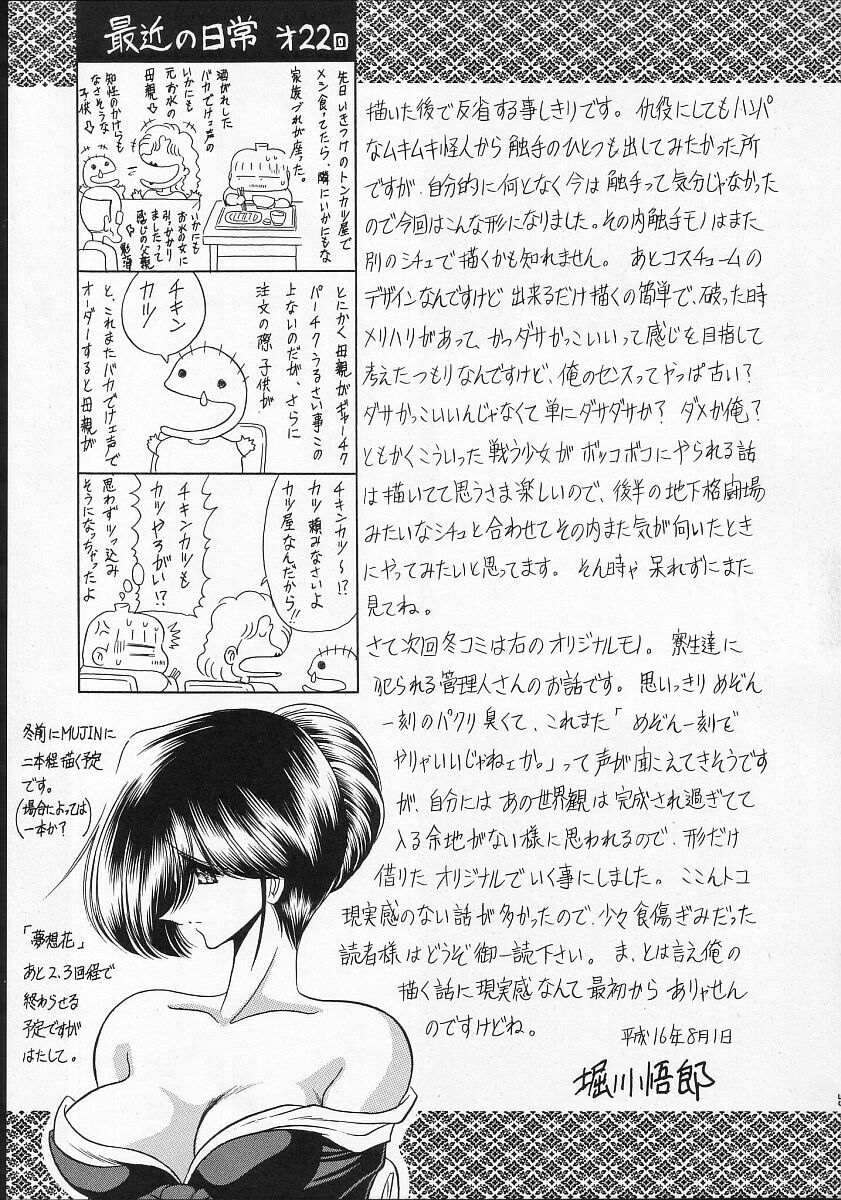 最近の日常 才22回
先日いきつけのトンカツ屋で
メシ食ってたら、隣にいかにもな
家族づれが座った。
酒がれした
バカでけェ声の
いかにも
元お水の
母親⇨
知性のかけらも
なさそうな
子供⇨
いかにも
お水の女に
引っかかり
ましたって
感じの父親
とにかく母親がギャーチク
パーチクうるさい事この
上ないのだが、さらに
注文の際子供が
チキン
カツ
と、これまたバカでけェ声で
オーダーすると母親が
チキンカツ〜!?
カツ頼みなさいよ
カツ屋なんだから!!
チキンカツも
カツやろがい!?
思わずツッ込み
そうになっちゃったよ
描いた後で反省する事しきりです。仇役にしてもハンパ
なムキムキ怪人から触手のひとつも出してみたかった所
ですが、自分的に何となく今は触手って気分じゃなかった
ので今回はこんな形になりました。その内触手モノはまた
別のシチュで描くかも知れません。あとコスチュームの
デザインなんですけど出来るだけ描くの簡単で、破った時
メリハリがあって、かつダサかっこいいって感じを目指して
考えたつもりなんですけど、俺のセンスってやっぱ古い?
ダサかっこいいんじゃなくて単にダサダサか?ダメか俺?
ともかくこういった戦う少女がボッコボコにやられる話
は描いてて思うさま楽しいので、後半の地下格闘場
みたいなシチュと合わせてその内また気が向いたとき
にやってみたいと思ってます。そん時ゃ呆れずにまた
見てね。
さて次回冬コミは右のオリジナルモノ。寮生達に
犯られる管理人さんのお話です。思いっきりめぞん
一刻のパクリ臭くて、これまた「めぞん一刻で
やりゃいいじゃねェか。」って声が聞こえてきそうです
が、自分にはあの世界観は完成され過ぎてて
入る余地がない様に思われるので、形だけ
借りたオリジナルでいく事にしました。ここんトコ
現実感のない話が多かったので、少々食傷ぎみだった
読者様はどうぞ御一読下さい。ま、とは言え俺の
描く話に現実感なんて最初からありゃせん
のですけどね。
平成16年8月1日
堀川悟郎
冬前にMUJINに
二本程描く予定
です。
(場合によっては
一本か?)
「夢想花」
あと2、3回程で
終わらせる
予定ですが
はたして。